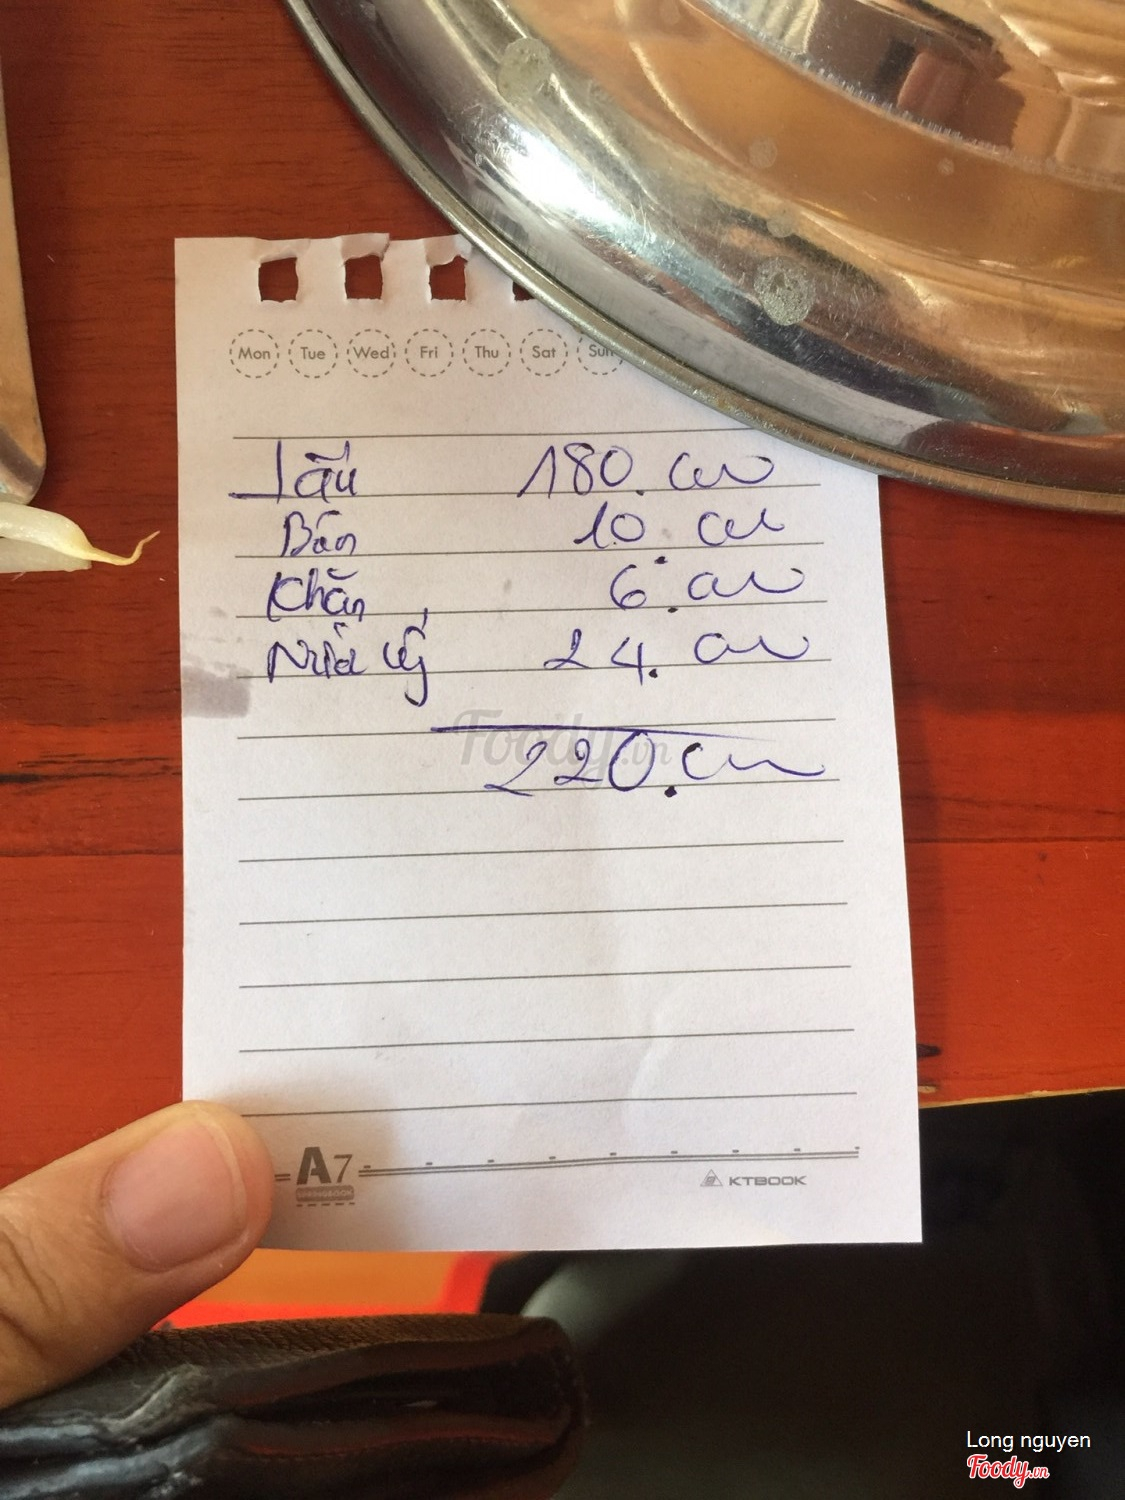 Mon Tue Wed Fri Thu Sat Sun
Lẩu 180.000
Bún 10.000
Khăn 6.000
24.000
Foody.vn
220.000
A7
KTBOOK
Long nguyen
Foody.vn